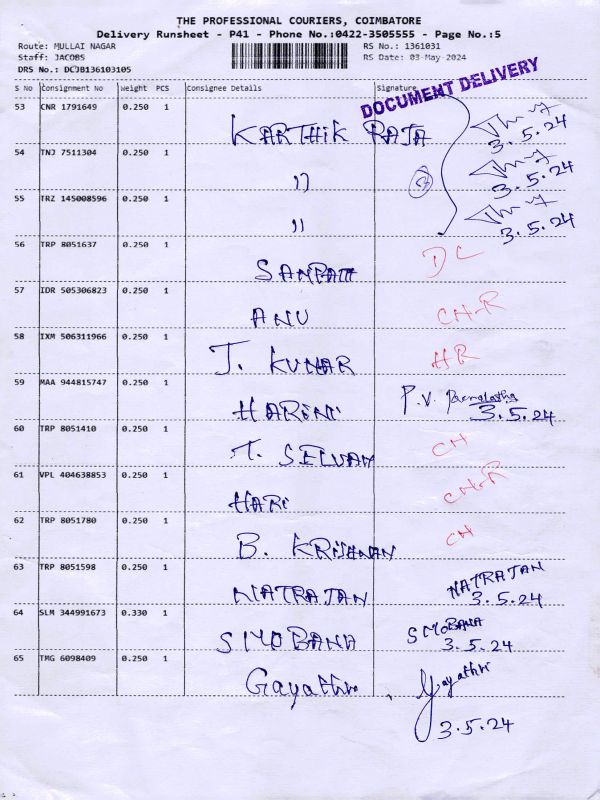 THE PROFESSIONAL COURIERS, COIMBATORE
Delivery Runsheet - P41 - Phone No.:0422-3505555 - Page No.:5
Route: MULLAI NAGAR RS No.: 1361031
Staff: JACOBS RS Date: 03-May-2024
DRS No.: DCJB136103105
DOCUMENT DELIVERY
S No Consignment No Weight PCS Consignee Details Signature
53 CNR 1791649 0.250 1 KARTHIK RAJA 3.5.24
54 TNJ 7511304 0.250 1 " 3.5.24
55 TRZ 145008596 0.250 1 " 3.5.24
56 TRP 8051637 0.250 1 SAMPATH DC
57 IDR 505306823 0.250 1 ANU CH-R
58 IXM 506311966 0.250 1 J. KUMAR HR
59 MAA 944815747 0.250 1 HARINI P.V. 3.5.24
60 TRP 8051410 0.250 1 T. SELVAM CH
61 VPL 404638853 0.250 1 HARI CH-R
62 TRP 8051780 0.250 1 B. KRISHNAN CH
63 TRP 8051598 0.250 1 NATRAJAN NATRAJAN 3.5.24
64 SLM 344991673 0.330 1 SHOBANA SHOBANA 3.5.24
65 TMG 6098409 0.250 1 Gayathri Gayathri
3.5.24